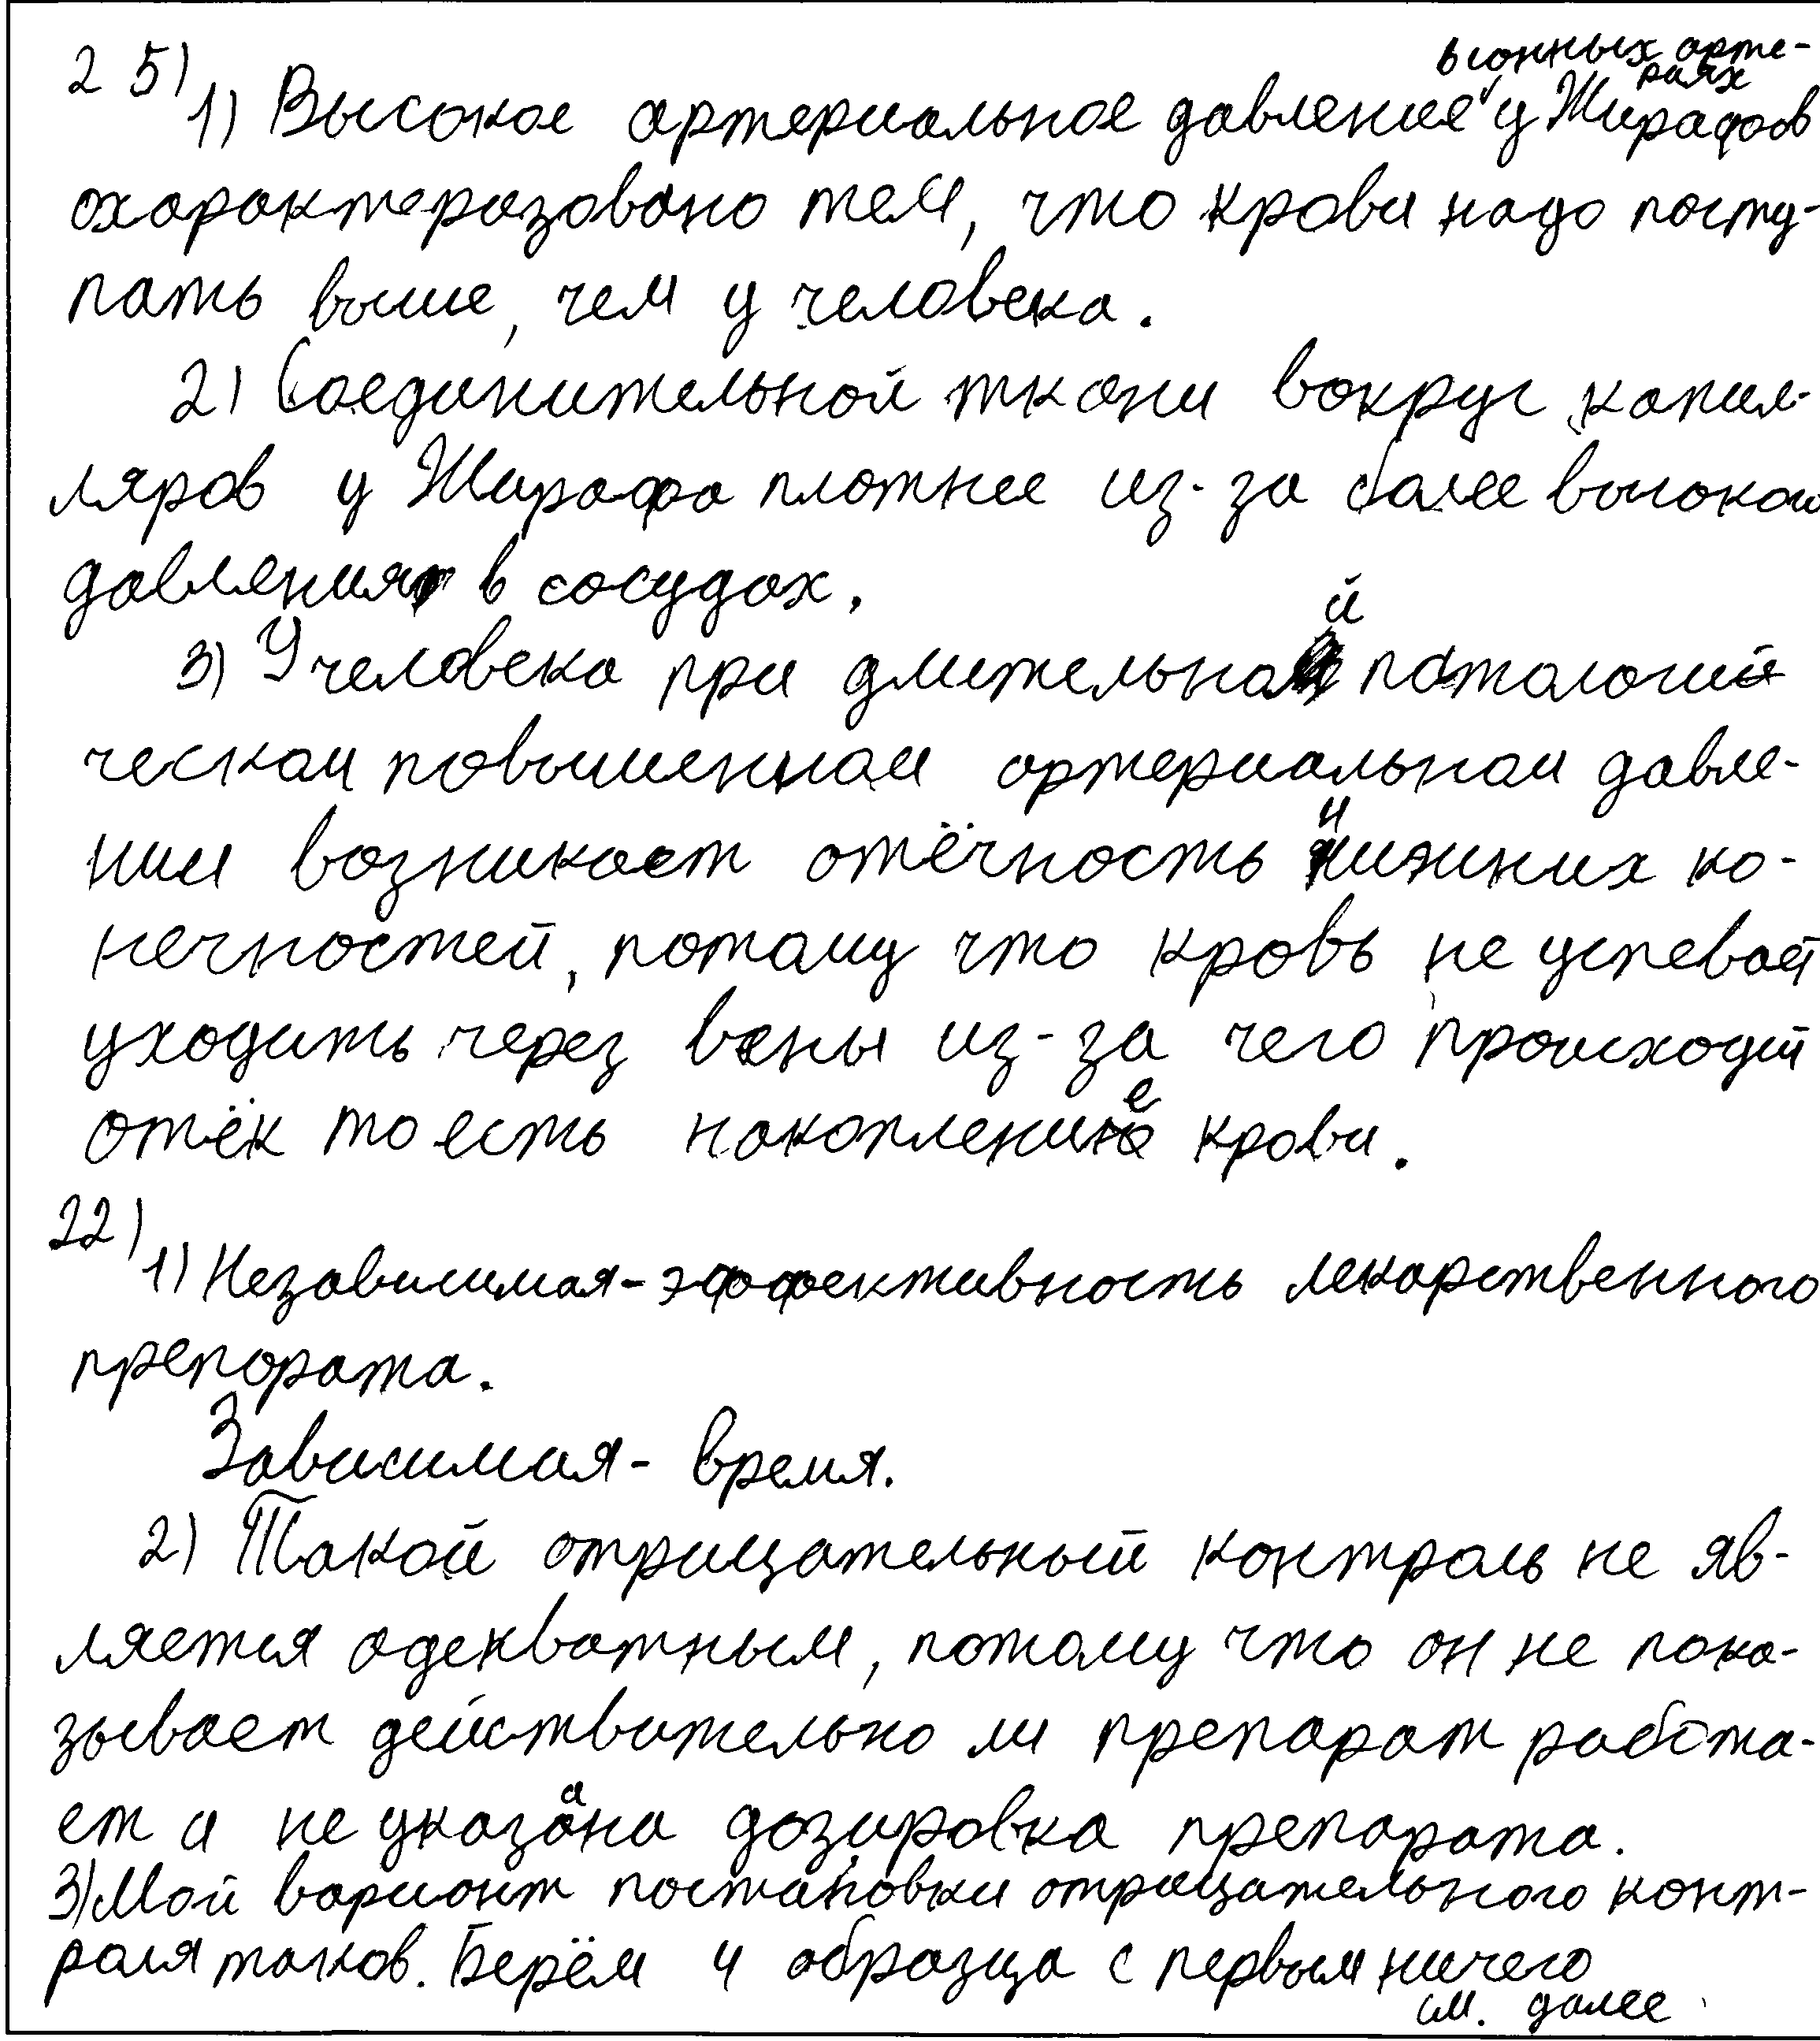 25)
в сонных арте-
риях
1) Высокое артериальное давление у Жирафов
охарактеризовано тем, что крови надо посту-
пать выше, чем у человека.
2) Соединительной ткани вокруг капил-
ляров у Жирафа плотнее из-за более высоком
давления в сосудах.
3) У человека при длительной патологии
ческом повышенном артериальном давле-
нии возникает отёчность нижних ко-
нечностей, потому что кровь не успевает
уходить через вены из-за чего происходит
отёк то есть накопление крови.
22)
1) Независимая - эффективность лекарственного
препората.
Зависимая - время.
2) Такой отрицательный контроль не яв-
ляется адекватным, потому что он не пока-
зывает действительно ли препарат работа-
ет и не указана дозировка препарата.
3) Мой вариант постановки отрицательного конт-
роля таков. Берём 4 образца с первым ничего
см. далее